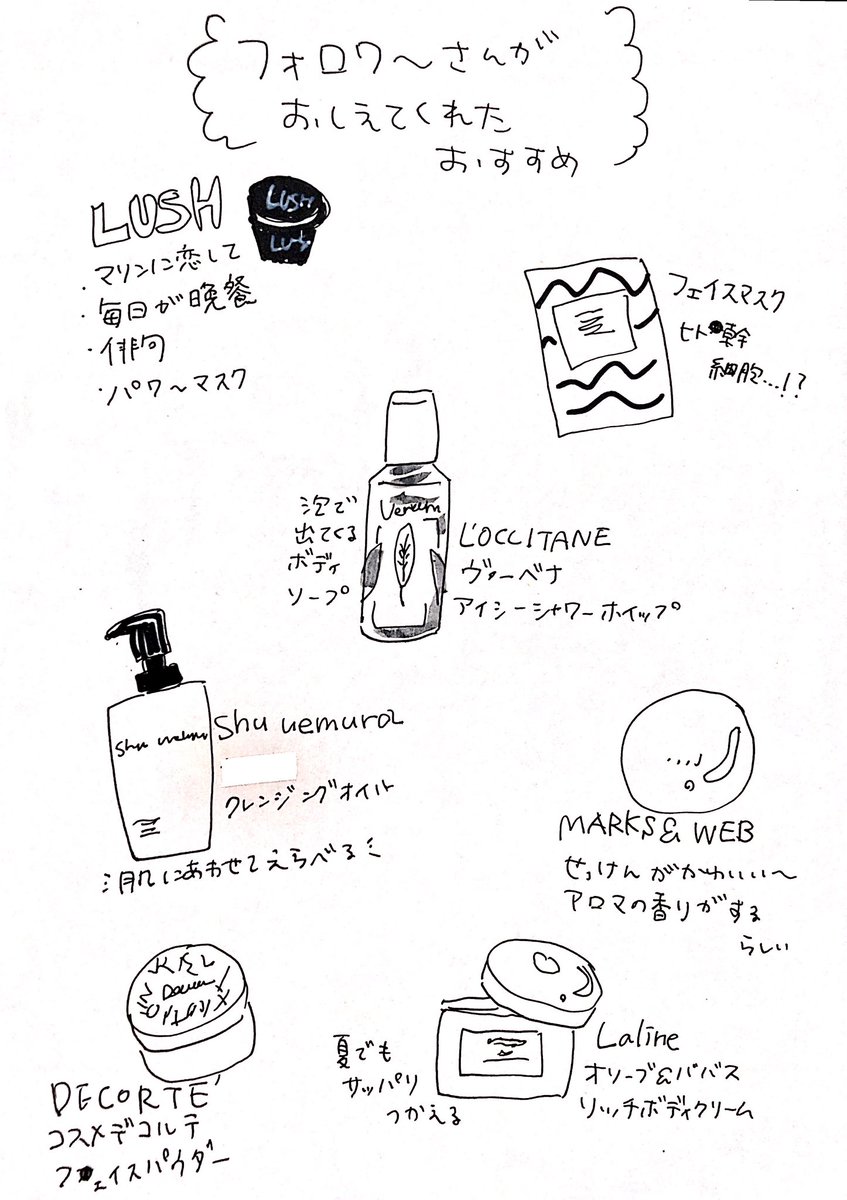 フォロワ〜さんが
おしえてくれた
おすすめ
LUSH
LUSH
LUSH
・マリンに恋して
・毎日が晩餐
・俳句
・パワ〜マスク
フェイスマスク
ヒト幹
細胞…!?
泡で
出てくる
ボディ
ソープ
L'OCCITANE
ヴァーベナ
アイシーシャワーホイップ
shu uemura
shu uemura
クレンジングオイル
肌にあわせてえらべる
MARKS&WEB
せっけんがかわいい〜
アロマの香りがする
らしい
DECORTÉ
コスメデコルテ
フェイスパウダー
夏でも
サッパリ
つかえる
Laline
オリーブ&パパス
リッチボディクリーム